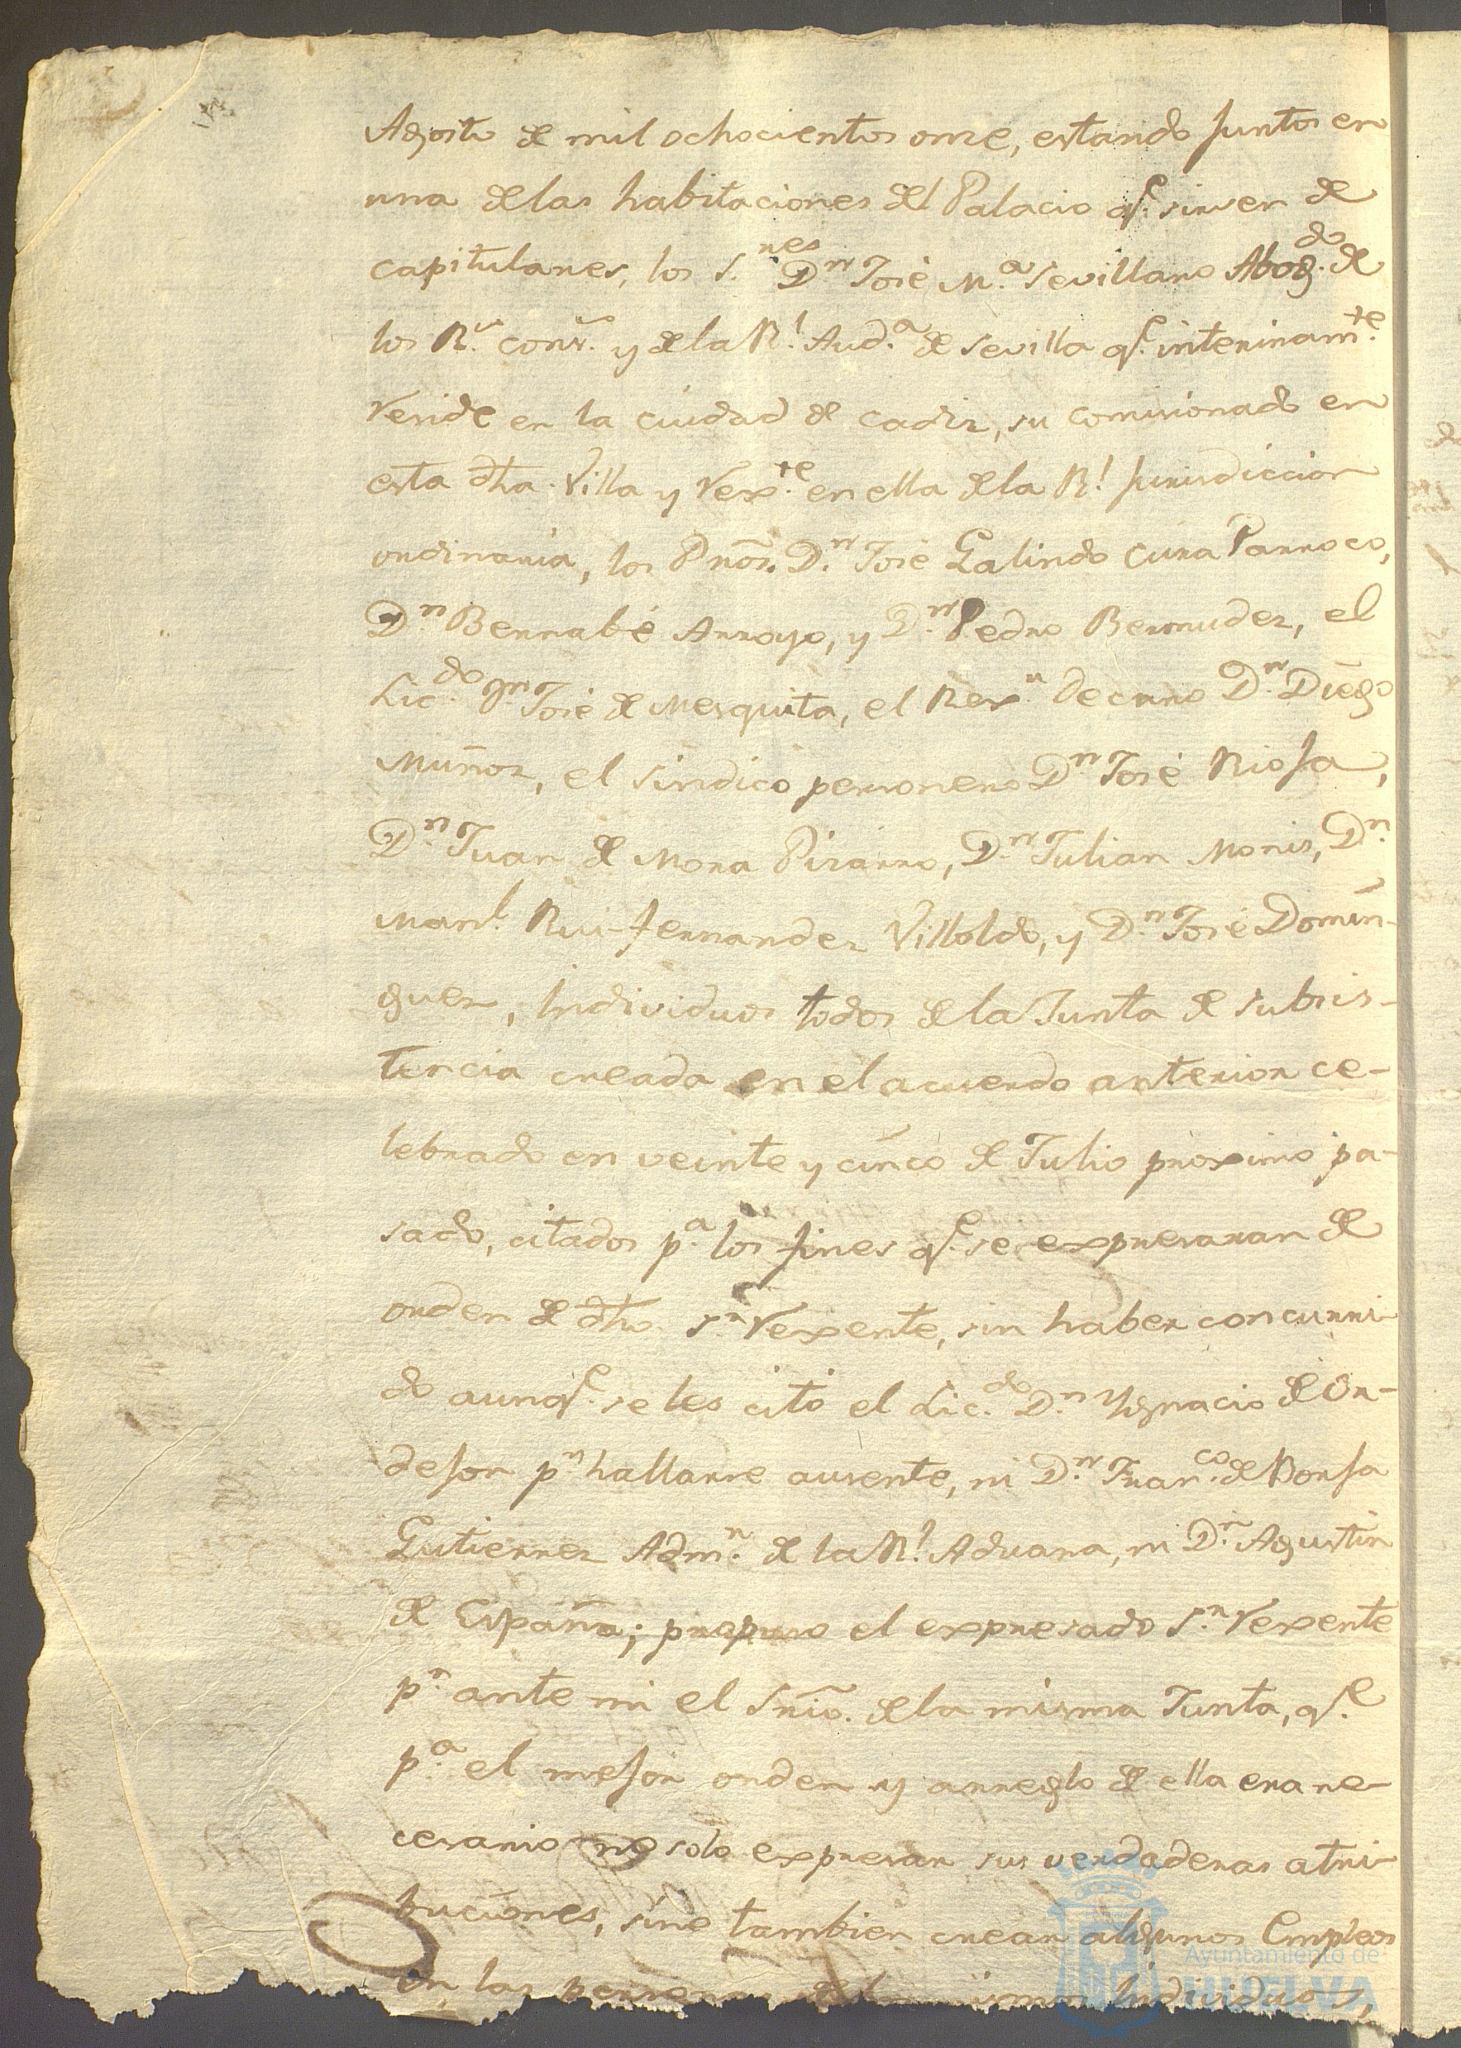 Agosto de mil ochocientos once, estando juntos en
una de las habitaciones del Palacio qe. sirven de
capitulares, los S.res Dn. José M.a Sevillano Abog.do de
los R.s cons.s y de la R.l Aud.a de Sevilla qe. interinam.te
reside en la ciudad de Cadiz, su comisionado en
esta dha. Villa y Rex.te en ella de la R.l Jurisdiccion
ordinaria, los Pros. Dn. José Galindo Cura Parroco,
Dn. Bernabé Arroyo, y Dn. Pedro Bermudez, el
Lic.do Dn. José de Mezquita, el Rex.r Decano Dn. Diego
Muñoz, el Sindico personero Dn. José Rioja,
Dn. Juan de Mora Pizarro, Dn. Julian Monis, Dn.
Man.l Rui-fernandez Villoldo, y Dn. José Domin-
guez, Individuos todos de la Junta de subsis-
tencia creada en el acuerdo anterior ce-
lebrado en veinte y cinco de Julio proximo pa-
sado, citados p.a los fines qe. se expresaran de
orden de dho. S.r Rexente, sin haber concurri-
do aunqe. se les citó el Lic.do Dn. Ygnacio de Or-
dejon p.r hallarse ausente, ni Dn. Fran.co de Borja
Gutierrez Adm.r de la R.l Aduana, ni Dn. Agustin
de España; propuso el expresado S.r Rexente
p.r ante mi el Srio. de la misma Junta, qe.
p.a el mejor orden y arreglo de ella era ne-
cesario no solo expresar sus verdaderas atri-
buciones, sino tambien crear algunos Empleos
en las personas de los mismos Individuos,
Ayuntamiento de
HUELVA